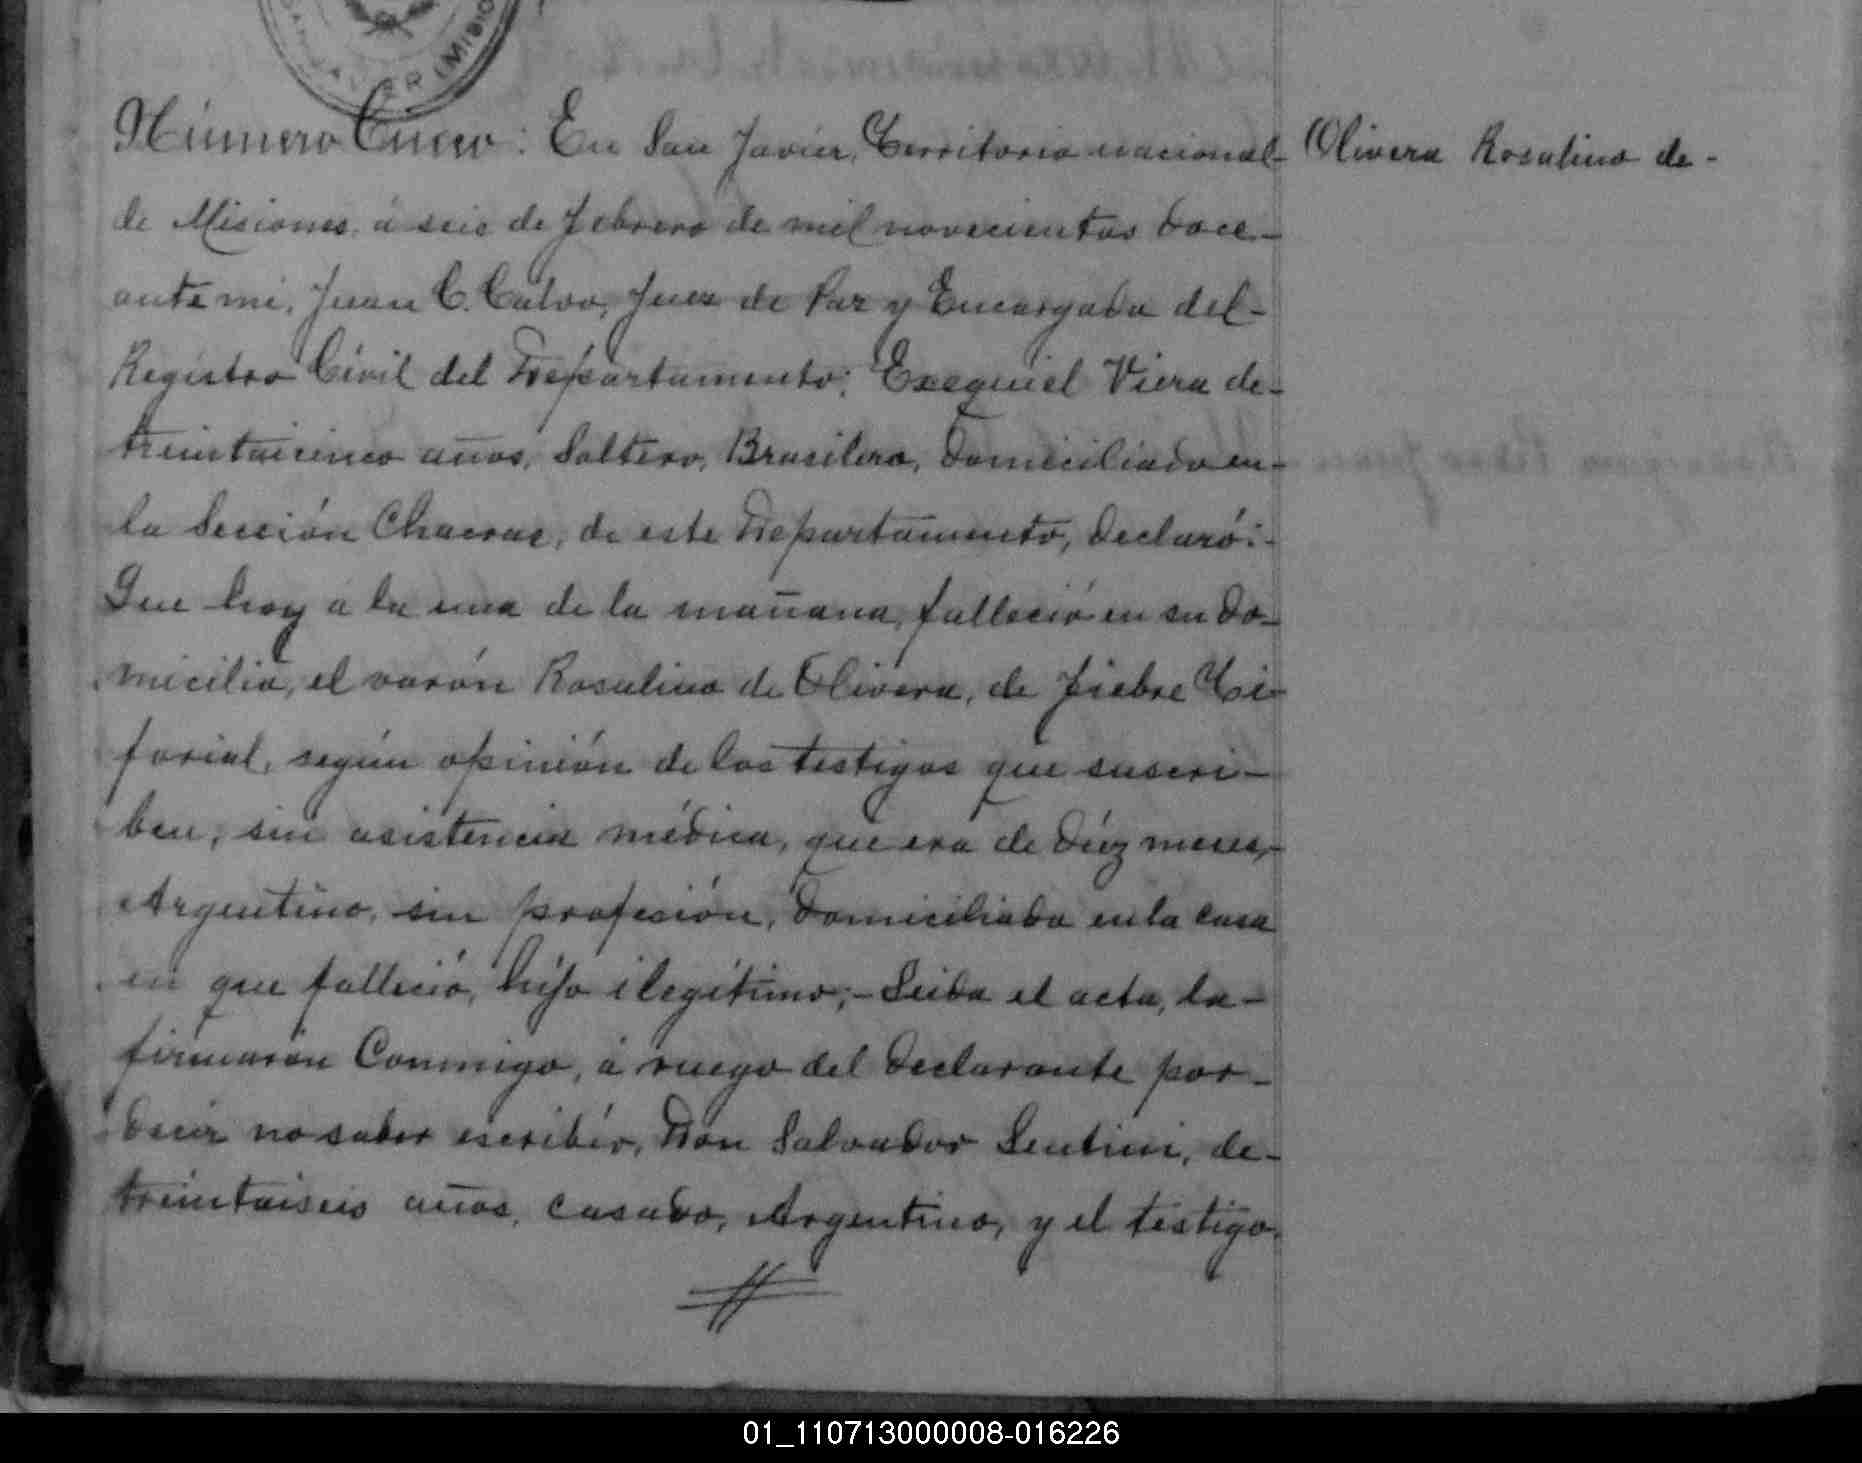 SAN JAVIER (MISIONES
Número Cinco: En San Javier, Territorio nacional-
Olivera Rosalino de-
de Misiones, á seis de febrero de mil novecientos doce-
ante mi, Juan C. Calvo, Juez de Paz y Encargado del-
Registro Civil del Departamento; Exequiel Viera de-
treintaicinco años, Soltero, Brasilero, domiciliado en-
la Sección Chacras, de este Departamento, declaró:-
Que hoy á la una de la mañana, falleció en su do-
micilio, el varón Rosalino de Olivera, de fiebre Ti-
forial, según opinión de los testigos que suscri-
ben, sin asistencia médica, que era de diéz meses,-
Argentino, sin profesión, domiciliado en la casa
en que falleció, hijo ilegítimo;- Leida el acta, la-
firmaron Conmigo, á ruego del declarante por-
decir no saber escribir, Don Salvador Lentini, de-
treintaiseis años, casado, Argentino, y el testigo
01_110713000008-016226